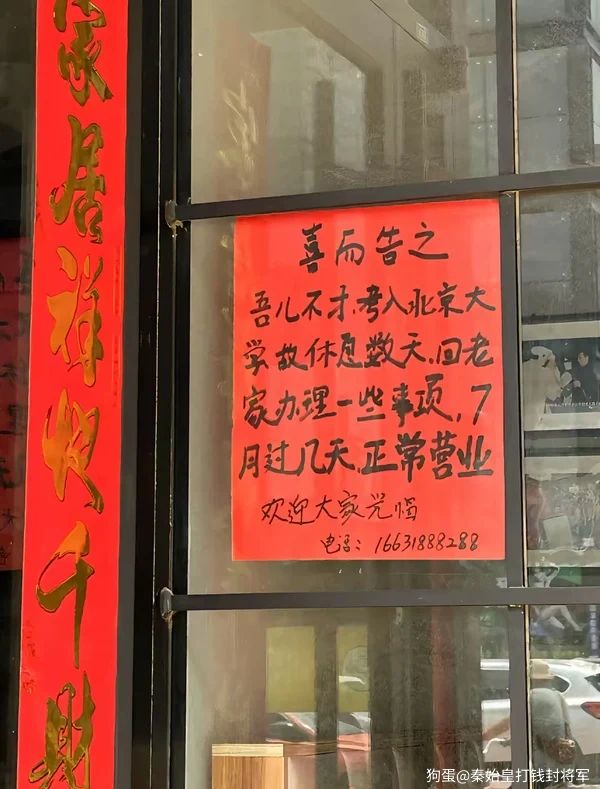 家居祥照千财
喜而告之
吾儿不才,考入北京大
学故休息数天.回老
家办理一些事项,7
月过几天,正常营业
欢迎大家光临
电话:16631888288
狗蛋@秦始皇打钱封将军